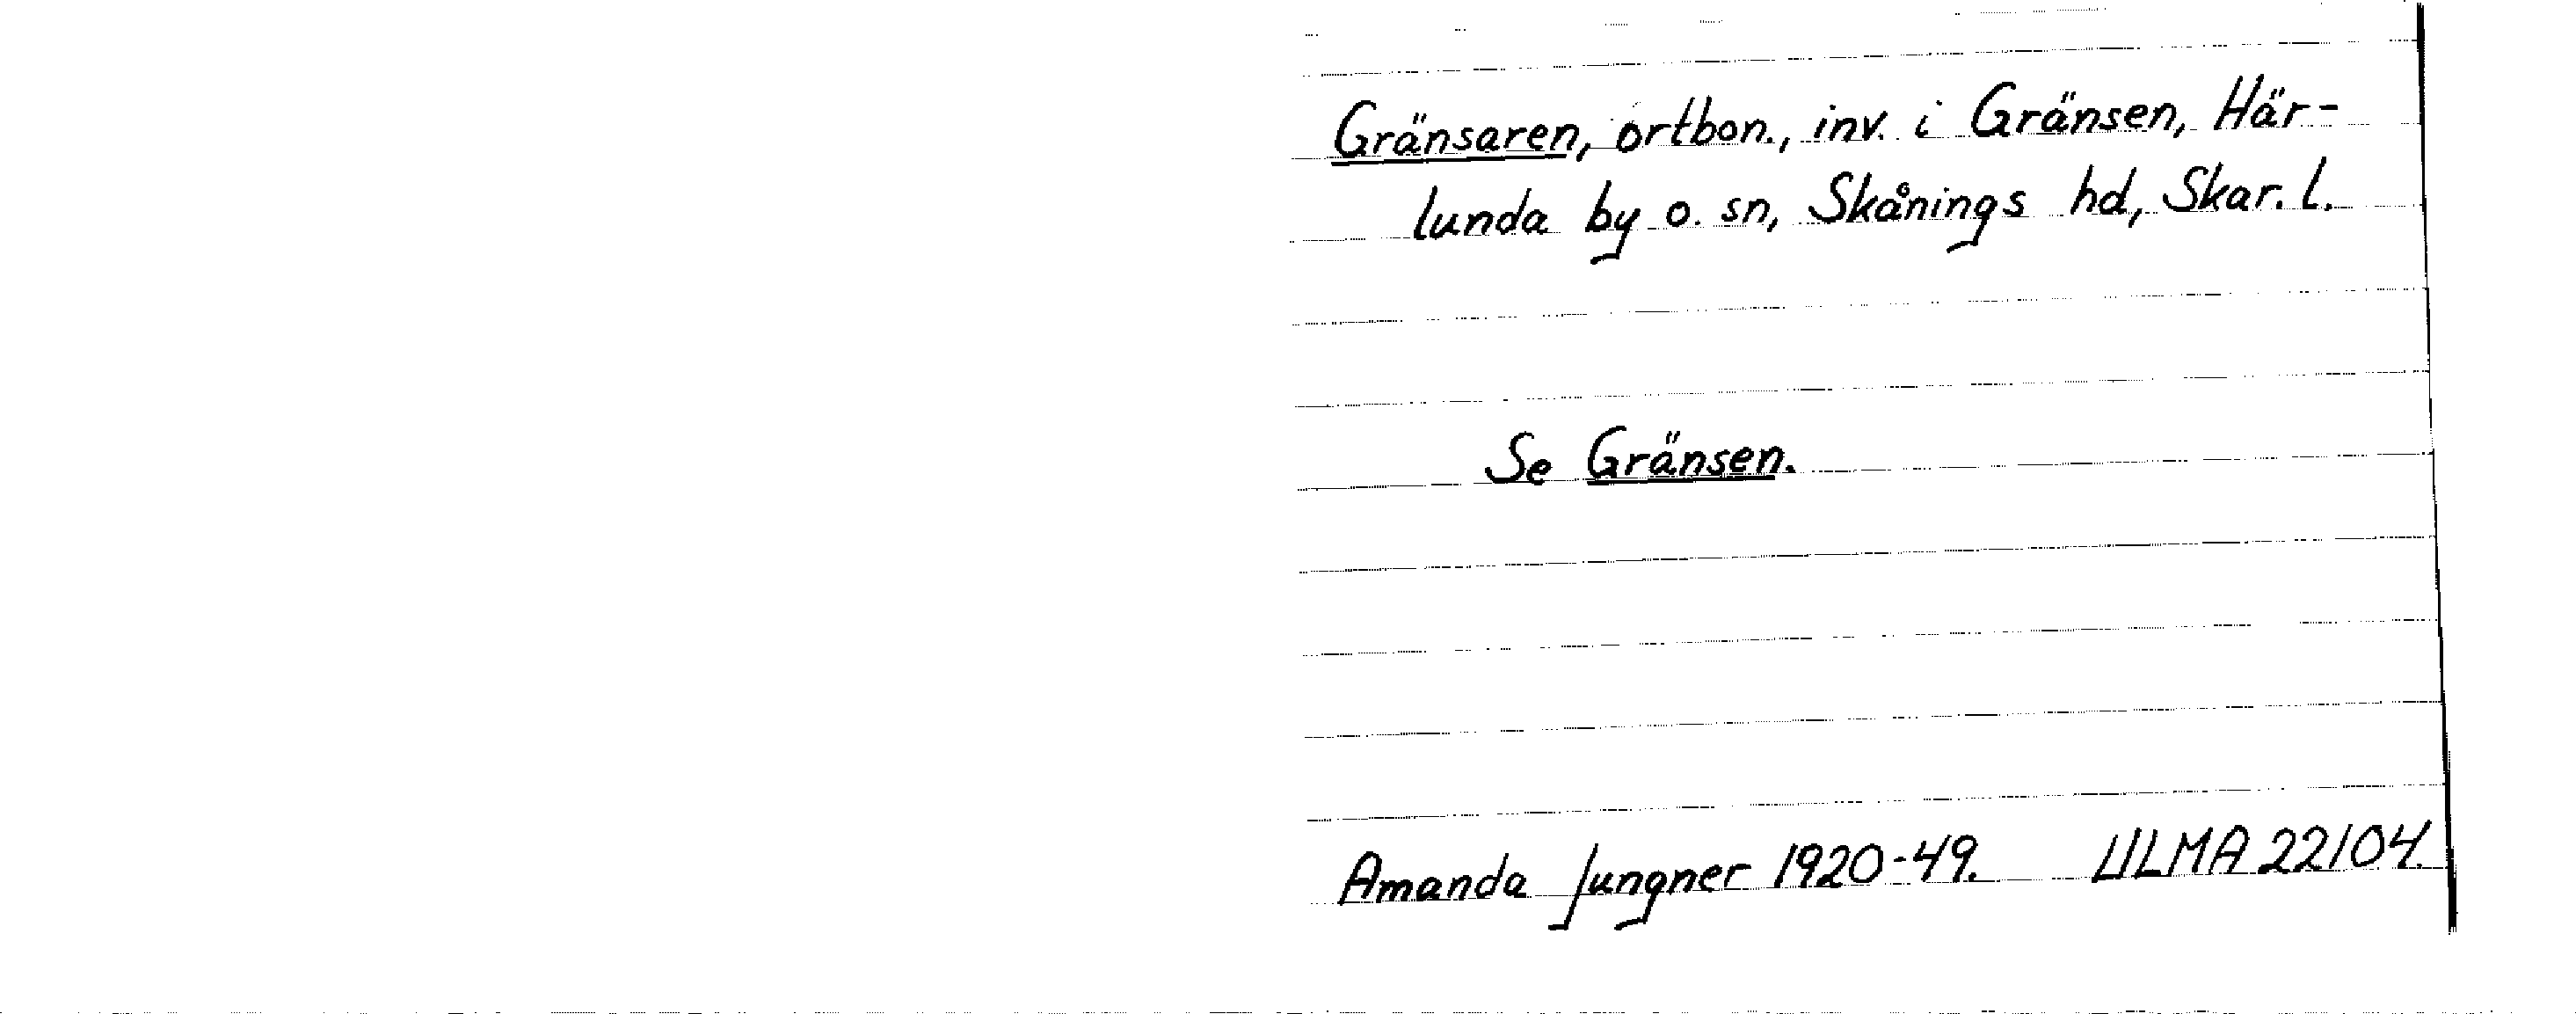 Gränsaren, ortbon., inv. i Gränsen, Här-
lunda by o. sn, Skånings hd, Skar. l.
Se Gränsen.
Amanda Jungner 1920-49. ULMA 22104.